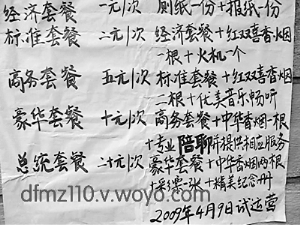 经济套餐 一元/次 厕纸一份+报纸一份
标准套餐 二元/次 经济套餐+红双喜香烟
一根+火机一个
商务套餐 五元/次 标准套餐+红双喜香烟
二根+优美音乐畅听
豪华套餐 十元/次 商务套餐+中华香烟一根
+专业陪聊并提供相应服务
总统套餐 二十元/次 豪华套餐+中华香烟两根
+彩票一张+精美纪念册
2009年4月9日试运营
dfmz110.v.woyo.com